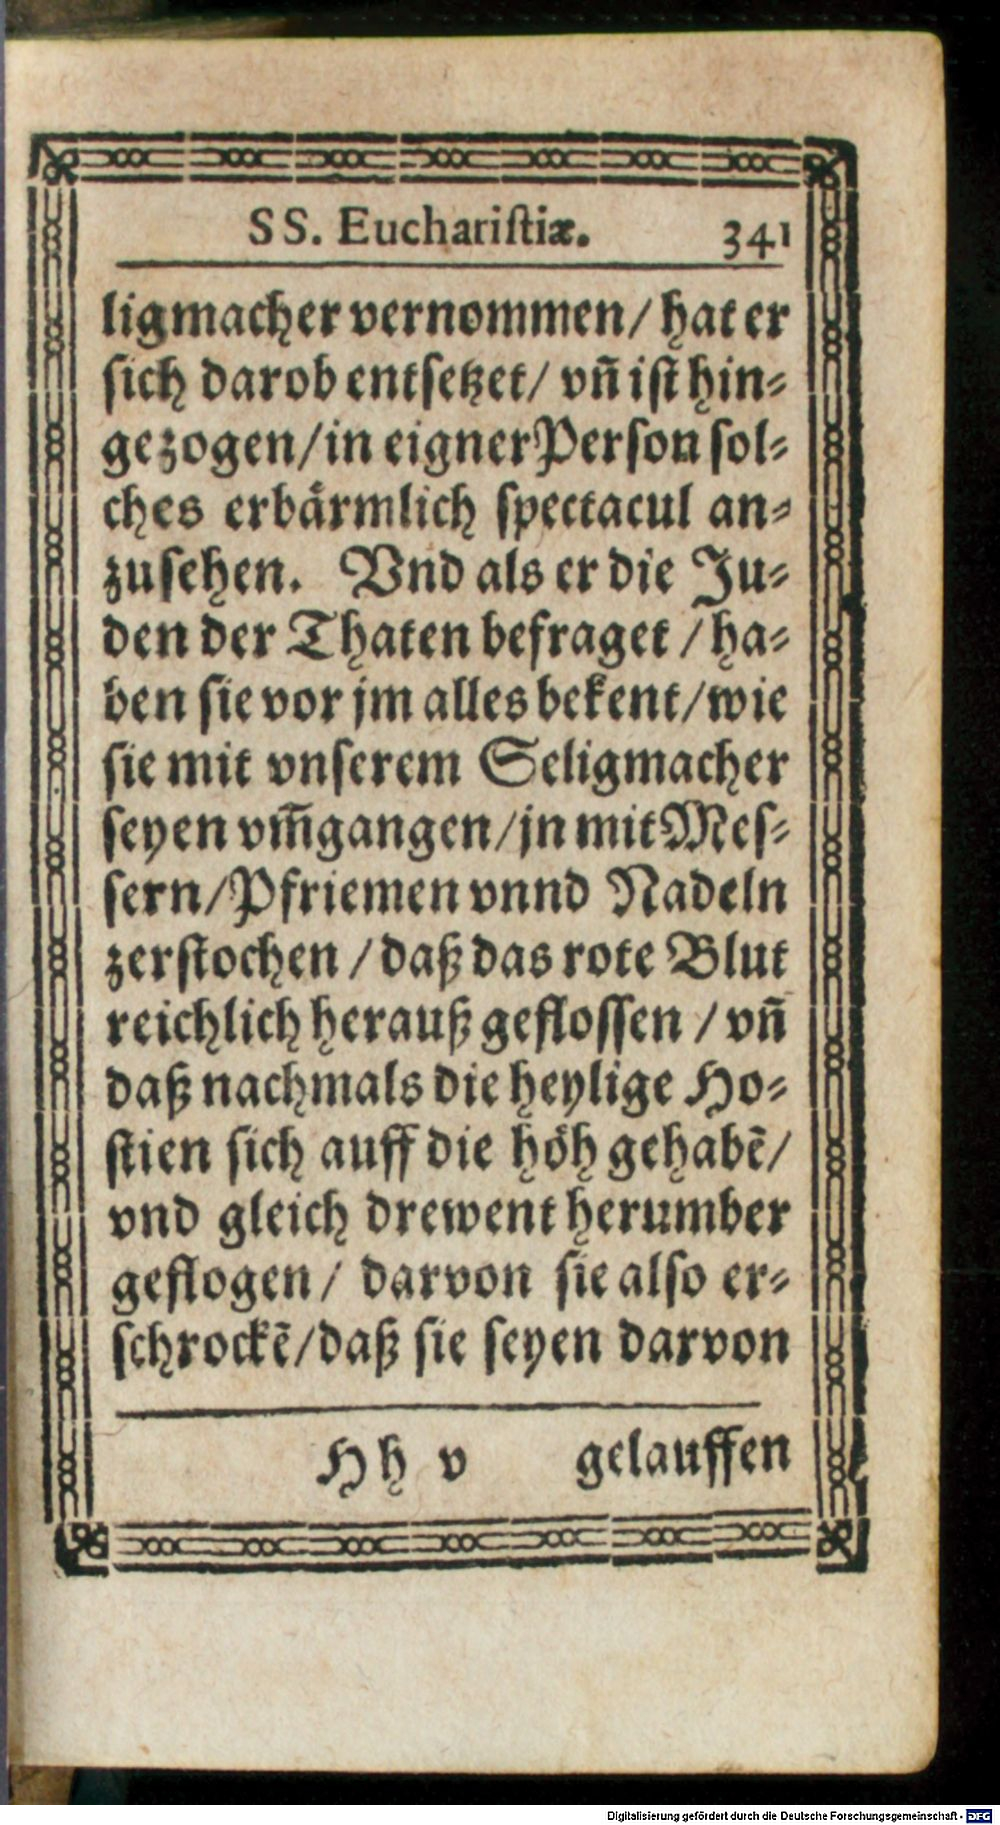 SS. Euchariſtiæ. 341
ligmacher vernommen/ hat er
ſich darob entſetzet/ vn̄ iſt hin-
gezogen/in eigner Perſon ſol-
ches erbaͤrmlich ſpectacul an-
zuſehen. Vnd als er die Ju-
den der Thaten befraget / ha-
ben ſie vor jm alles bekent/wie
ſie mit vnſerem Seligmacher
ſeyen vm̄gangen/jn mit Meſ-
ſern/Pfriemen vnnd Nadeln
zerſtochen / daß das rote Blut
reichlich herauß gefloſſen / vn̄
daß nachmals die heylige Ho-
ſtien ſich auff die hoͤh gehabē/
vnd gleich drewent herumber
geflogen/ darvon ſie alſo er-
ſchrockē/daß ſie ſeyen darvon
Hh v gelauffen
Digitalisierung gefördert durch die Deutsche Forschungsgemeinschaft - DFG